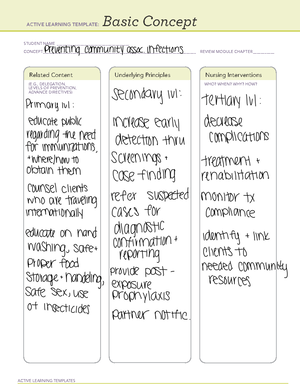 ACTIVE LEARNING TEMPLATE: Basic Concept
STUDENT NAME
CONCEPT Preventing community assoc. infections REVIEW MODULE CHAPTER
Related Content
(E.G., DELEGATION,
LEVELS OF PREVENTION,
ADVANCE DIRECTIVES)
Primary lvl:
educate public
regarding the need
for immunizations,
+ where/how to
obtain them
counsel clients
who are traveling
internationally
educate on hand
washing, safe+
proper food
storage + handeling,
safe sex, use
of insecticides
Underlying Principles
secondary lvl:
increase early
detection thru
screenings +
case finding
refer suspected
cases for
diagnostic
confirmation +
reporting
provide post-
exposure
prophylaxis
partner notific.
Nursing Interventions
WHO? WHEN? WHY? HOW?
tertiary lvl:
decrease
complications
treatment +
rehabilitation
monitor tx
compliance
identify + link
clients to
needed community
resources
ACTIVE LEARNING TEMPLATES